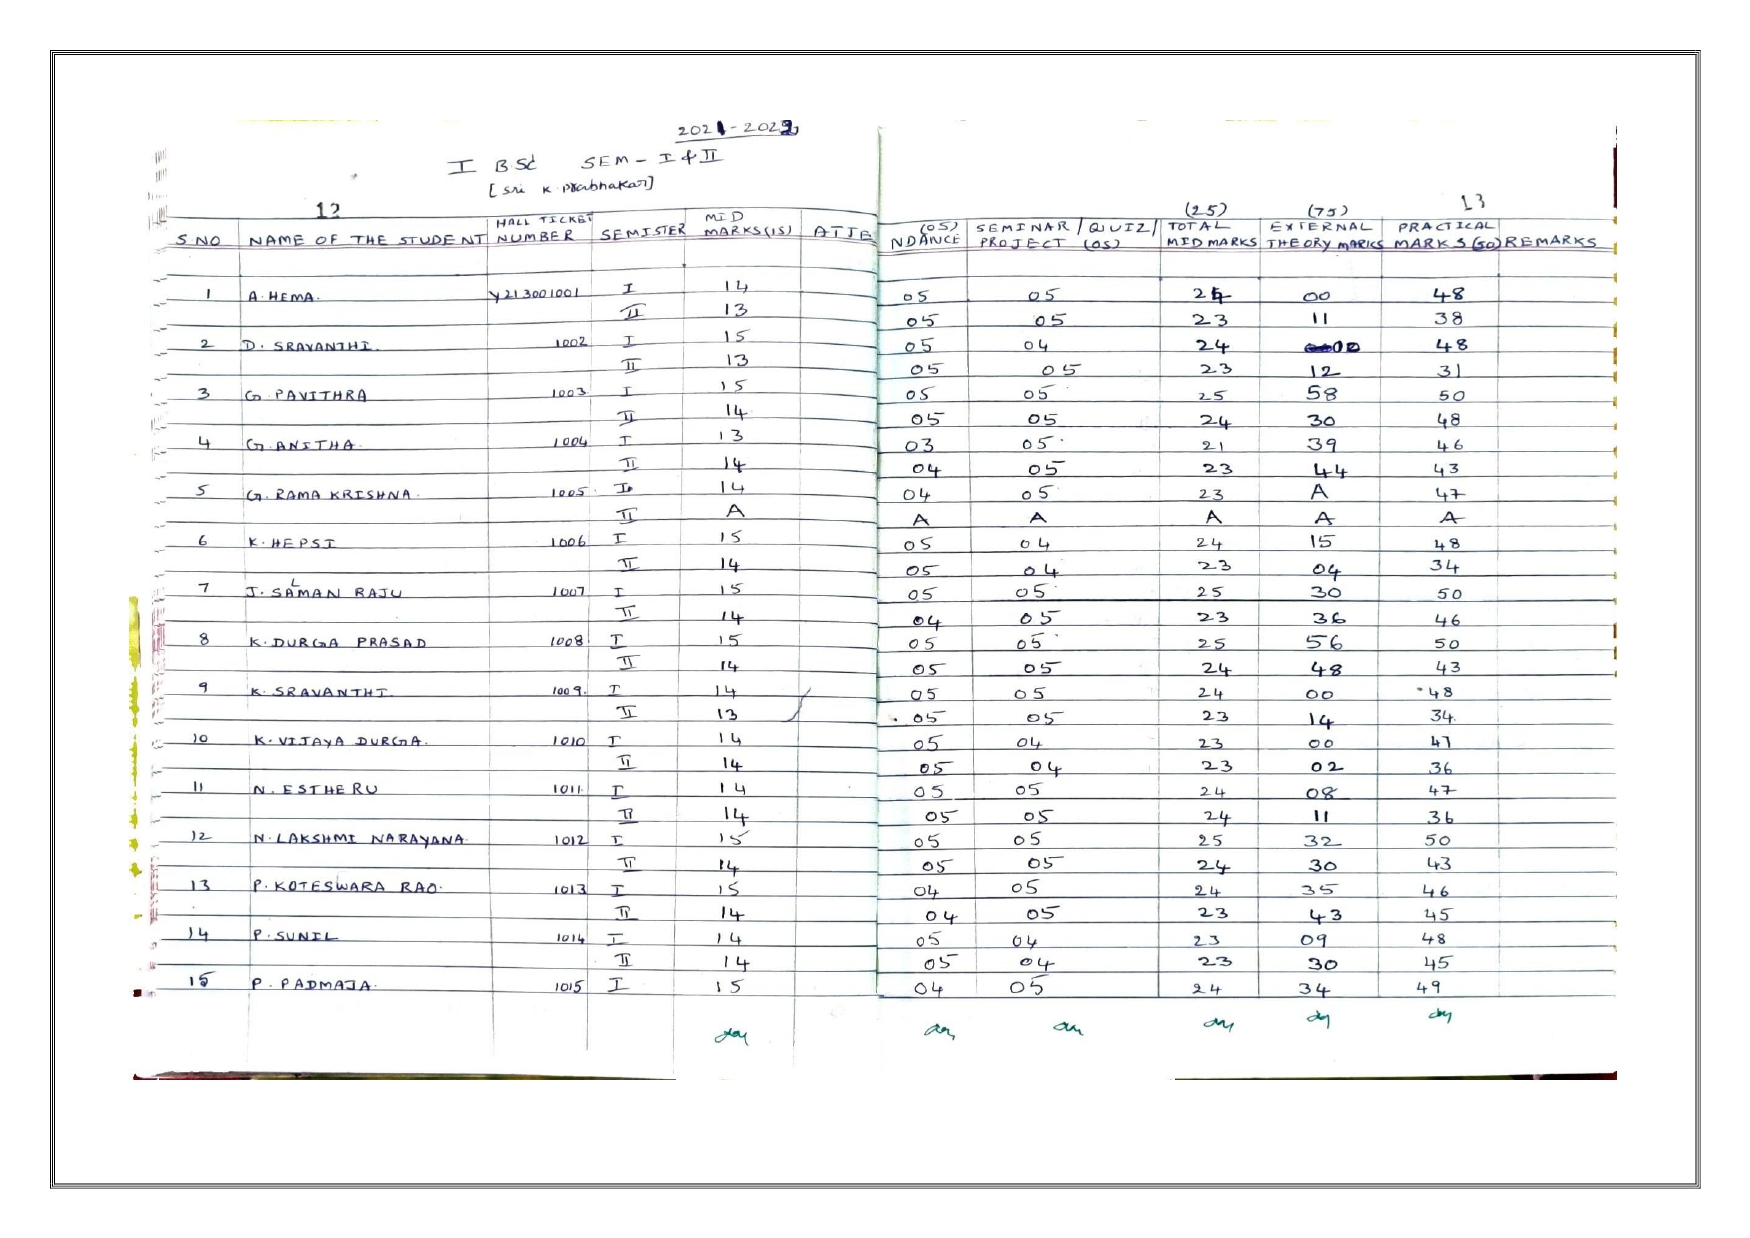 2021-2022
I BSc SEM - I & II
[Sri K. Prabhakar]
12 13
S.NO NAME OF THE STUDENT HALL TICKET NUMBER SEMISTER MID MARKS(15) ATTENDANCE (05) SEMINAR/QUIZ/PROJECT (05) TOTAL MID MARKS (25) EXTERNAL THEORY MARKS (75) PRACTICAL MARKS (50) REMARKS
1 A.HEMA. Y213001001 I 14 05 05 24 00 48
II 13 05 05 23 11 38
2 D. SRAVANTHI. 1002 I 15 05 04 24 00 48
II 13 05 05 23 12 31
3 G. PAVITHRA 1003 I 15 05 05 25 58 50
II 14 05 05 24 30 48
4 G. ANITHA. 1004 I 13 03 05 21 39 46
II 14 04 05 23 44 43
5 G. RAMA KRISHNA. 1005 I 14 04 05 23 A 47
II A A A A A A
6 K. HEPSI 1006 I 15 05 04 24 15 48
II 14 05 04 23 04 34
7 J. SALMAN RAJU 1007 I 15 05 05 25 30 50
II 14 04 05 23 36 46
8 K. DURGA PRASAD 1008 I 15 05 05 25 56 50
II 14 05 05 24 48 43
9 K. SRAVANTHI 1009. I 14 05 05 24 00 48
II 13 05 05 23 14 34.
10 K. VIJAYA DURGA. 1010 I 14 05 04 23 00 47
II 14 05 04 23 02 36
11 N. ESTHERU 1011 I 14 05 05 24 08 47
II 14 05 05 24 11 36
12 N. LAKSHMI NARAYANA. 1012 I 15 05 05 25 32 50
II 14 05 05 24 30 43
13 P. KOTESWARA RAO. 1013 I 15 04 05 24 35 46
II 14 04 05 23 43 45
14 P. SUNIL 1014 I 14 05 04 23 09 48
II 14 05 04 23 30 45
15 P. PADMAJA. 1015 I 15 04 05 24 34 49